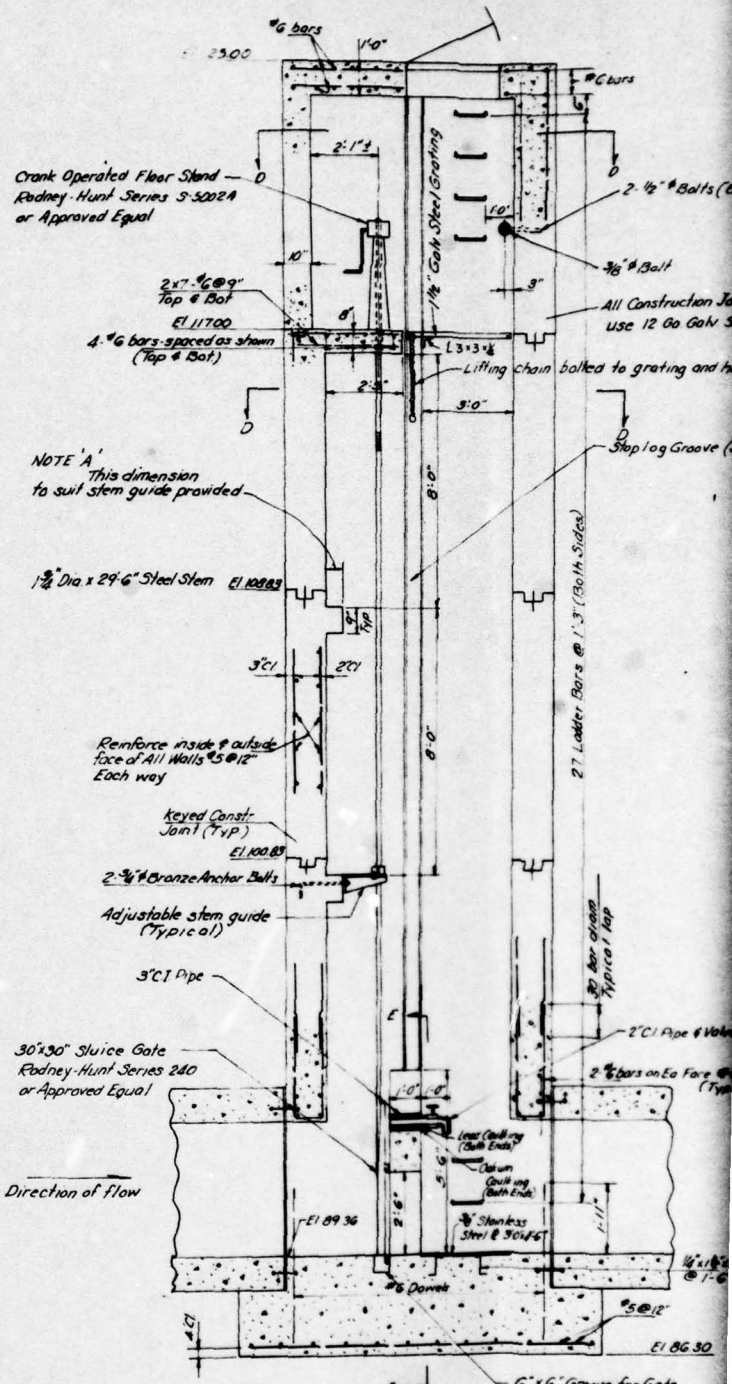 #6 bars
1'-0"
25.00
#6 bars
6"
2'-1" ±
D
D
Crank Operated Floor Stand
Rodney-Hunt Series S-5002A
or Approved Equal
1 1/2" Galv Steel Grating
1'-0"
2-1/2" ⌀ Bolts
3/8" ⌀ Bolt
10"
3"
2x7-#6@9"
Top & Bot
El 117.00
8"
4-#6 bars-spaced as shown
(Top & Bot)
All Construction
use 12 Ga Galv
L 3x3x¼
Lifting chain bolted to grating and
3'-0"
D
D
Stop log Groove
NOTE 'A'
This dimension
to suit stem guide provided
8'-0"
1 3/4" Dia x 29'-6" Steel Stem
El 108.83
9"
Typ
27 Ladder Bars @ 1'-3" (Both Sides)
3"Cl
2"Cl
8'-0"
Reinforce inside & outside
face of All Walls #5@12"
Each way
Keyed Constr-
Joint (Typ)
El 100.83
2-3/4" ⌀ Bronze Anchor Bolts
Adjustable stem guide
(Typical)
30 bar diam
Typical lap
3" CI Pipe
E
30"x30" Sluice Gate
Rodney-Hunt Series 240
or Approved Equal
2" CI Pipe &
2-#6 bars on Ea Face
1'-0"
1'-0"
Lead Caulking
(Both Ends)
Oakum
Caulking
(Both Ends)
5'-6"
Direction of flow
2'-6"
1'-11"
El 89.36
3/8" Stainless
#6 Dowels
@ 1'-6
#5@12"
4"Cl
El 86.30
6"x6" Groove for Gate